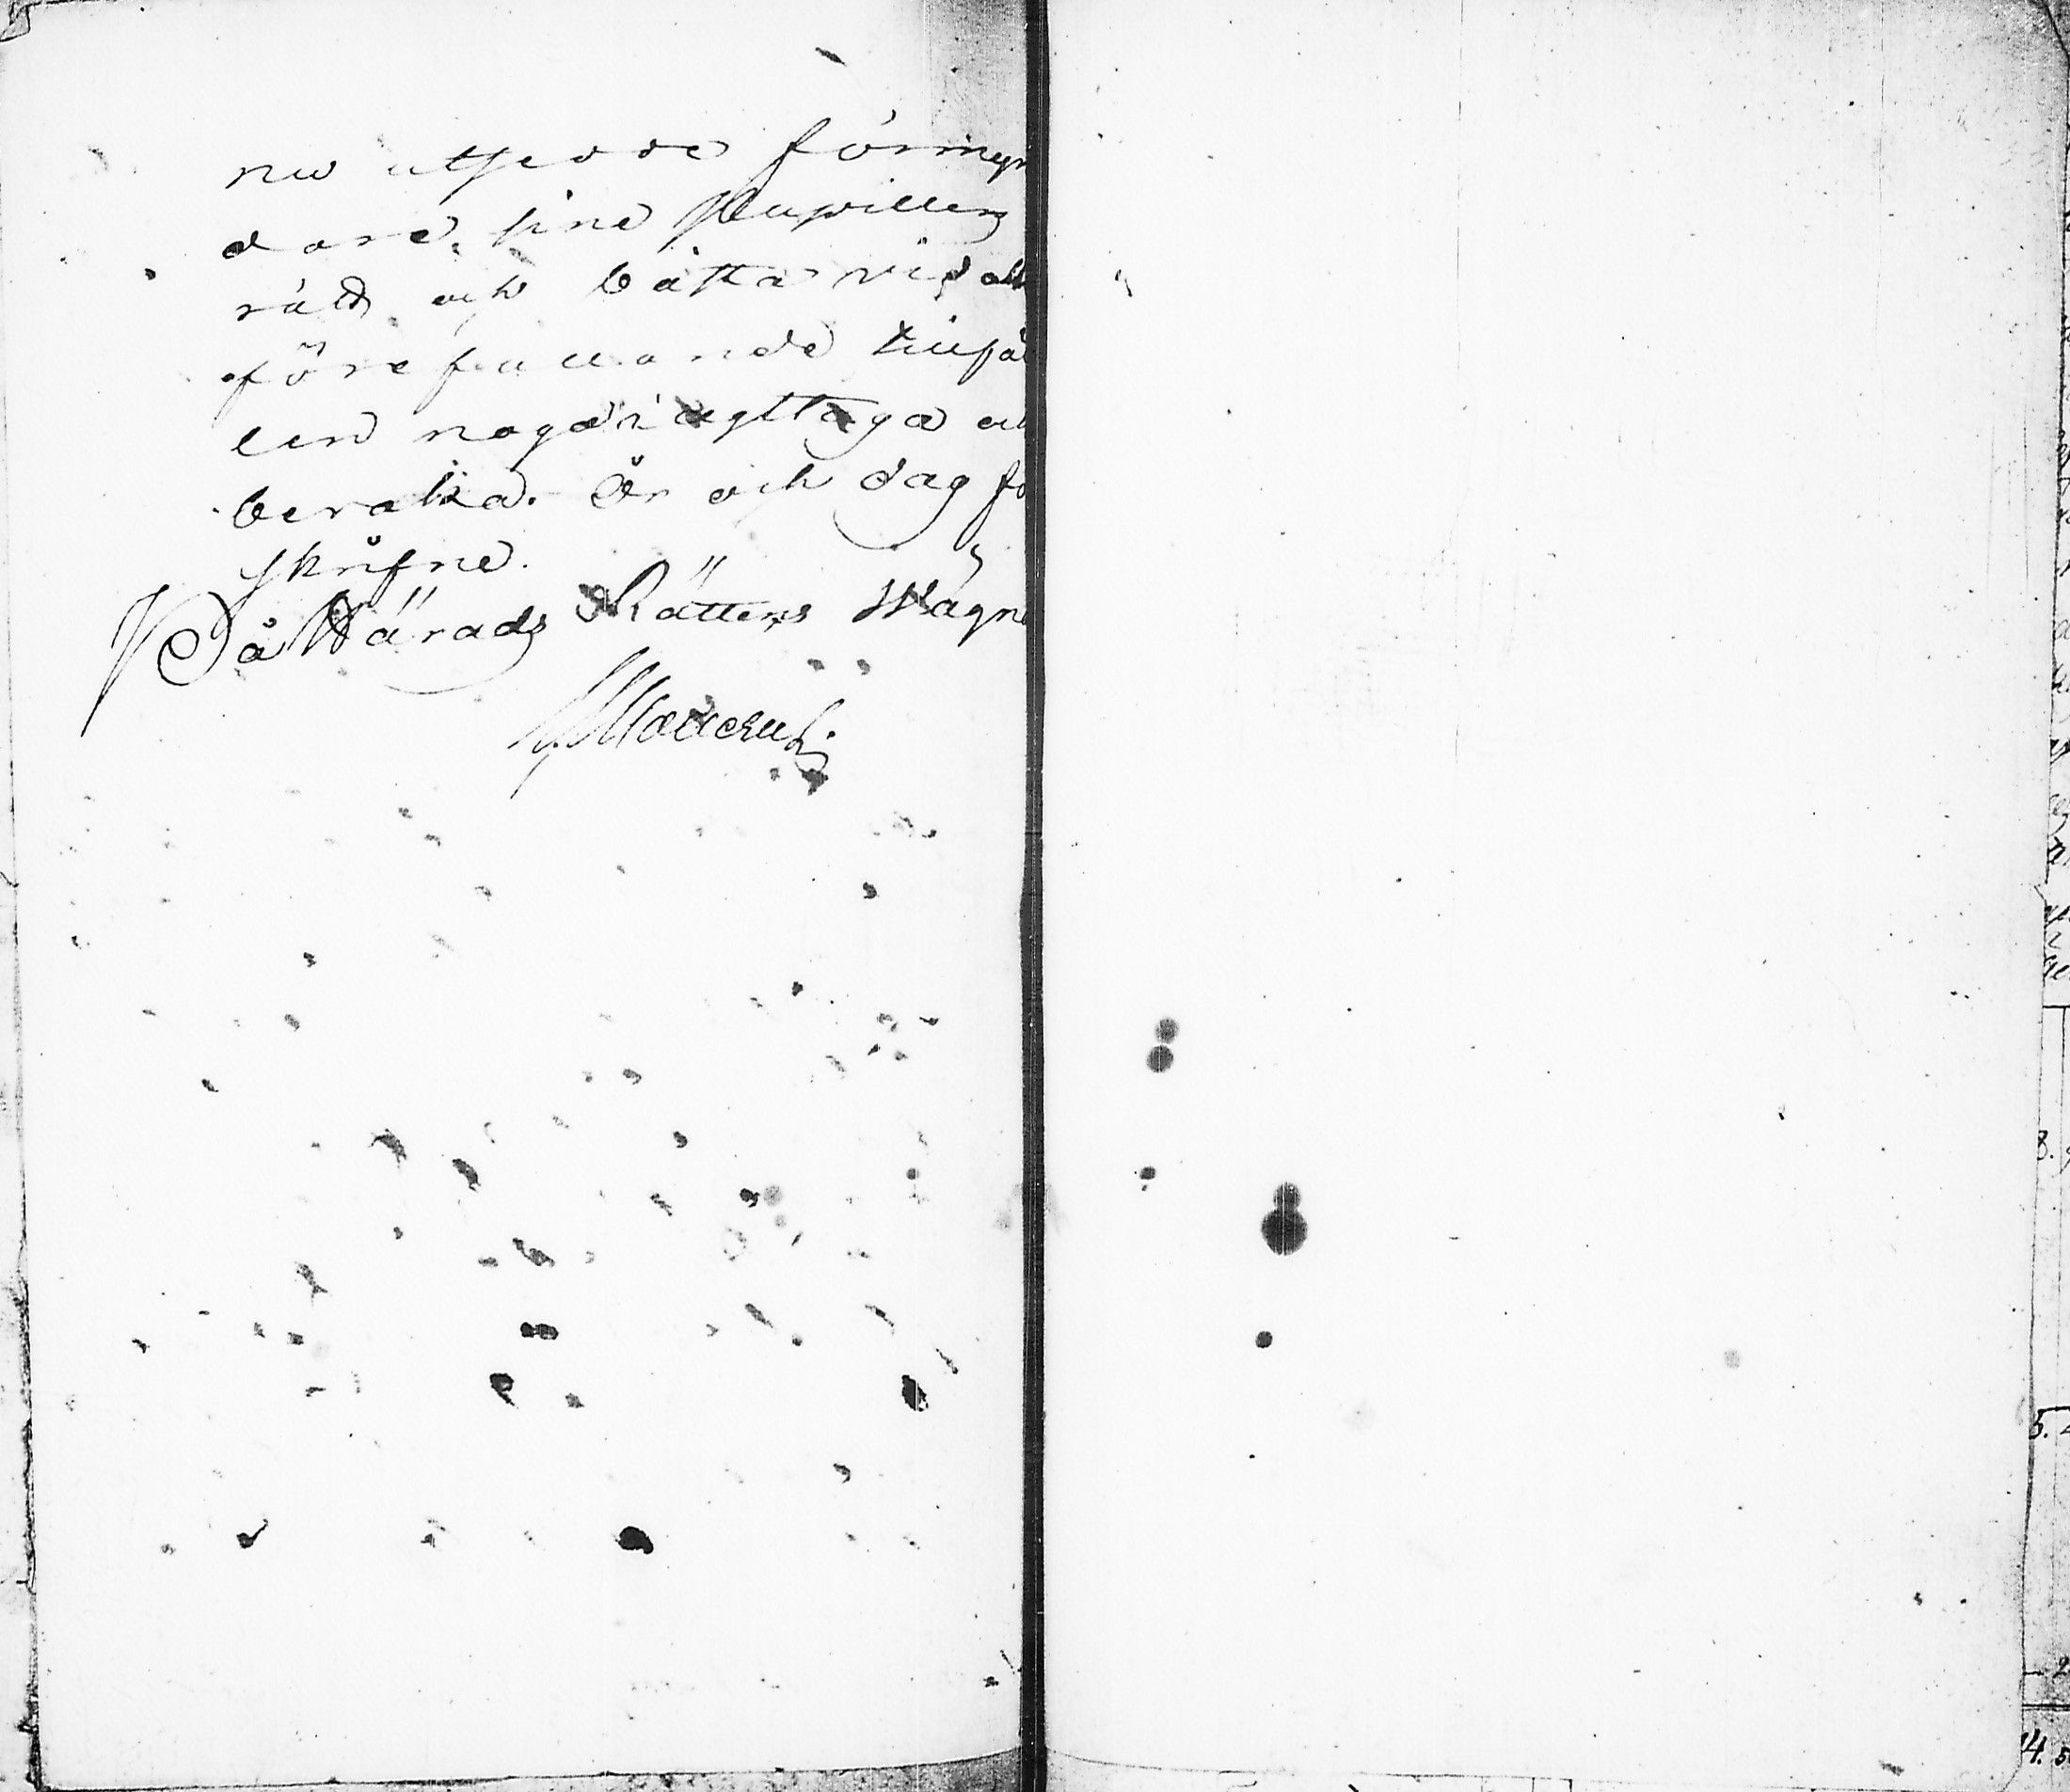 nu utsedde förmyn
dare, sine Pupillers
rätt och bästa vid all
förefallande tillfäl
len noga i agttaga och
bevaka. År och dag fö
skrifne.
På Härads Rättens Wägn